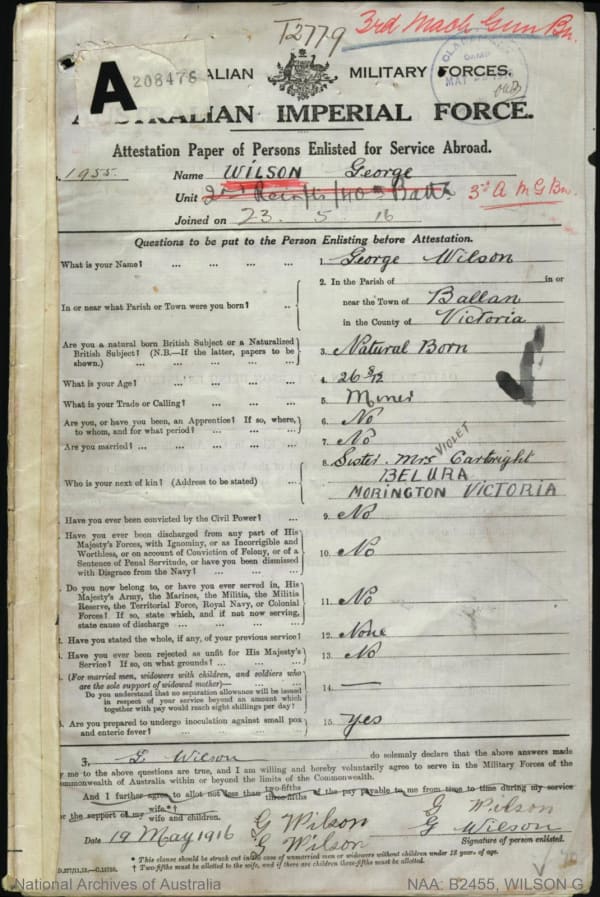 T2779
3rd Mach Gun Bn.
A
208476
ALIAN MILITARY FORCES.
AUSTRALIAN IMPERIAL FORCE.
Attestation Paper of Persons Enlisted for Service Abroad.
1955. Name WILSON George
Unit 2nd Reinfts/40th Battn 3rd A M G Bn.
Joined on 23. 5. 16
Questions to be put to the Person Enlisting before Attestation.
What is your Name? ... ... ... ... 1. George Wilson
In or near what Parish or Town were you born? ... 2. In the Parish of in or
near the Town of Ballan
in the County of Victoria
Are you a natural born British Subject or a Naturalized
British Subject? (N.B.—If the latter, papers to be
shown.) ... ... ... ... 3. Natural Born
What is your Age? ... ... ... ... 4. 26 8/12
What is your Trade or Calling? ... ... ... 5. Miner
Are you, or have you been, an Apprentice? If so, where,
to whom, and for what period? ... ... 6. No
Are you married? ... ... ... ... 7. No
Who is your next of kin? (Address to be stated) ... 8. Sister. Mrs VIOLET Cartwright
BELURA
MORINGTON VICTORIA
Have you ever been convicted by the Civil Power? ... 9. No
Have you ever been discharged from any part of His
Majesty's Forces, with Ignominy, or as Incorrigible and
Worthless, or on account of Conviction of Felony, or of a
Sentence of Penal Servitude, or have you been dismissed
with Disgrace from the Navy? ... ... ... 10. No
Do you now belong to, or have you ever served in, His
Majesty's Army, the Marines, the Militia, the Militia
Reserve, the Territorial Force, Royal Navy, or Colonial
Forces? If so, state which, and if not now serving,
state cause of discharge ... ... ... 11. No
Have you stated the whole, if any, of your previous service? 12. None
Have you ever been rejected as unfit for His Majesty's
Service? If so, on what grounds? ... ... 13. No
(For married men, widowers with children, and soldiers who
are the sole support of widowed mother)—
Do you understand that no separation allowance will be issued
in respect of your service beyond an amount which
together with pay would reach eight shillings per day? 14. —
Are you prepared to undergo inoculation against small pox
and enteric fever? ... ... ... 15. yes
G Wilson do solemnly declare that the above answers made
me to the above questions are true, and I am willing and hereby voluntarily agree to serve in the Military Forces of the
mmonwealth of Australia within or beyond the limits of the Commonwealth.
And I further agree to allot not less than two-fifths three-fifths of the pay payable to me from time to time during my service
the support of my wife.*† wife and children.
G Wilson G Wilson
Date 19 May 1916 G Wilson G Wilson
Signature of person enlisted.
* This clause should be struck out in the case of unmarried men or widowers without children under 18 years of age.
† Two-fifths must be allotted to the wife, and if there are children three-fifths must be allotted.
National Archives of Australia NAA: B2455, WILSON G